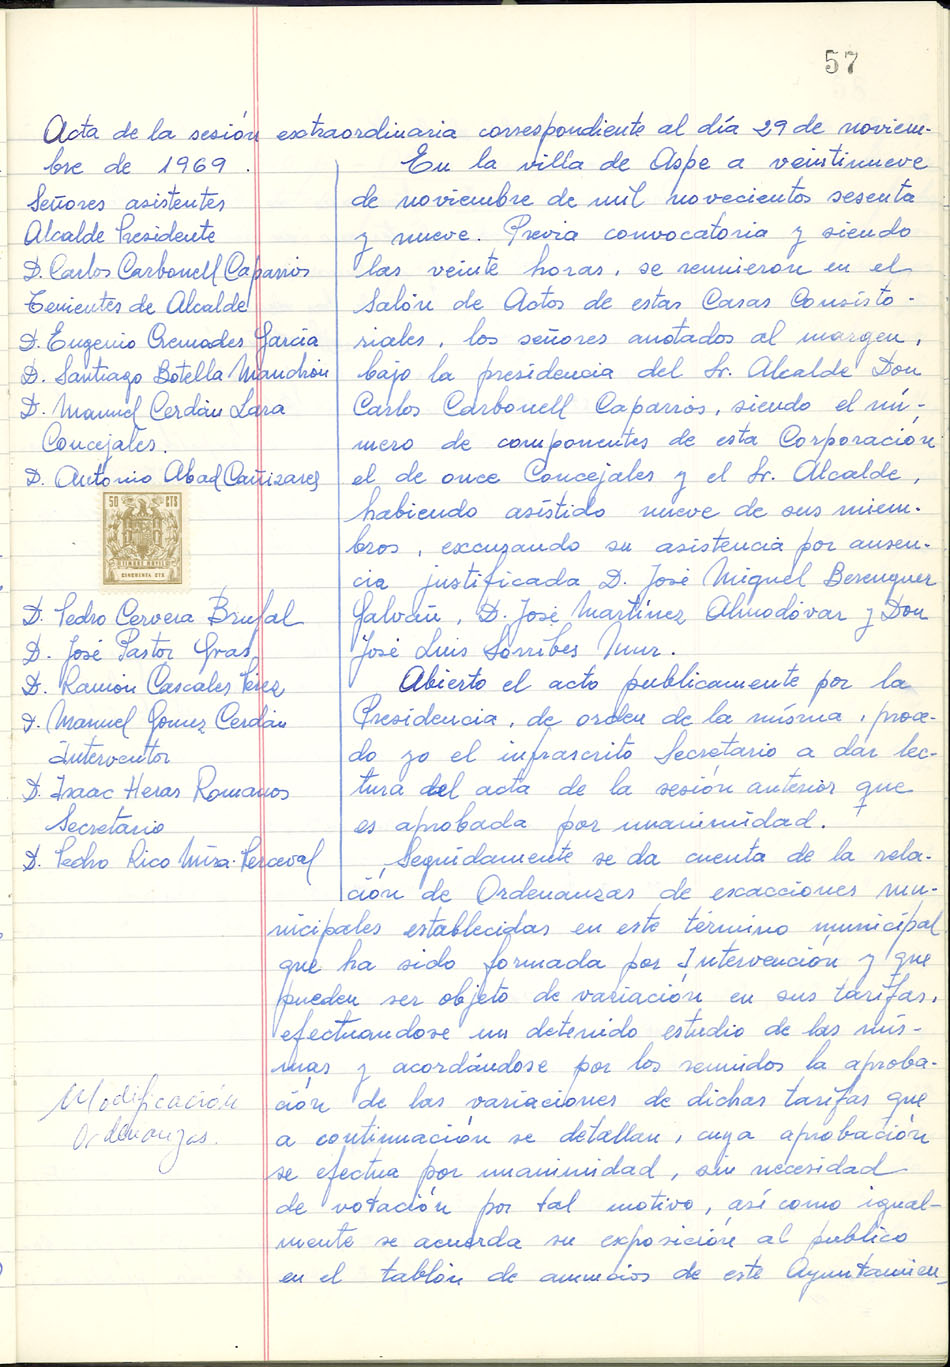 57
Acta de la sesión extraordinaria correspondiente al día 29 de noviem-
bre de 1969.
Señores asistentes
Alcalde Presidente
D. Carlos Carbonell Caparrós
Tenientes de Alcalde
D. Eugenio Cremades García
D. Santiago Botella Mandión
D. Manuel Cerdán Lara
Concejales.
D. Antonio Abad Cañizares
50 CTS
CINCUENTA CTS
D. Pedro Cervera Brufal
D. José Pastor Gras
D. Ramón Cascales Pérez
D. Manuel Gomez Cerdán
Interventor
D. Isaac Heras Romanos
Secretario
D. Pedro Rico Mira-Perceval
En la villa de Aspe a veintinueve
de noviembre de mil novecientos sesenta
y nueve. Previa convocatoria y siendo
las veinte horas, se reunieron en el
Salón de Actos de estas Casas Consisto-
riales, los señores anotados al margen,
bajo la presidencia del Sr. Alcalde Don
Carlos Carbonell Caparrós, siendo el nú-
mero de componentes de esta Corporación
el de once Concejales y el Sr. Alcalde,
habiendo asistido nueve de sus miem-
bros, excusando su asistencia por ausen-
cia justificada D. José Miguel Berenguer
Galvañ, D. José Martínez Almodóvar y Don
José Luis Sorribes Mur.
Abierto el acto publicamente por la
Presidencia, de orden de la misma, proce-
do yo el infrascrito Secretario a dar lec-
tura del acta de la sesión anterior que
es aprobada por unanimidad.
Seguidamente se da cuenta de la rela-
ción de Ordenanzas de exacciones mu-
nicipales establecidas en este término municipal
que ha sido formada por Intervención y que
pueden ser objeto de variación en sus tarifas,
efectuandose un detenido estudio de las mis-
mas y acordándose por los reunidos la aproba-
ción de las variaciones de dichas tarifas que
a continuación se detallan, cuya aprobación
se efectua por unanimidad, sin necesidad
de votación por tal motivo, así como igual-
mente se acuerda su exposición al publico
en el tablón de anuncios de este Ayuntamien-
Modificación
Ordenanzas.